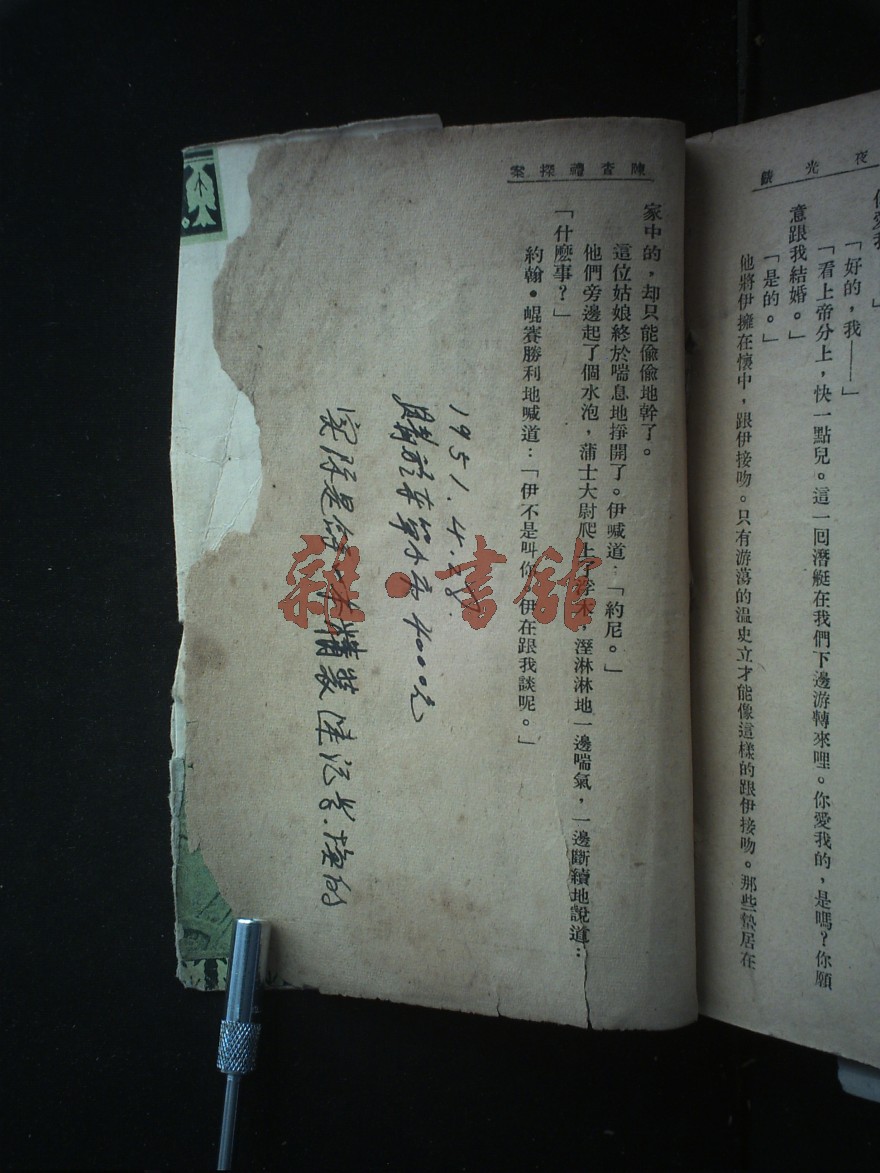 夜光錶
「好的，我——」
「看上帝分上，快一點兒。這一囘潛艇在我們下邊游轉來哩。你愛我的，是嗎？你願
意跟我結婚。」
「是的。」
他將伊擁在懷中，跟伊接吻。只有游蕩的溫史立才能像這樣的跟伊接吻。那些蟄居在
陳查禮探案
家中的，却只能偷偷地幹了。
這位姑娘終於喘息地掙開了。伊喊道：「約尼。」
他們旁邊起了個水泡，蒲士大尉爬上了浮木，溼淋淋地一邊喘氣，一邊斷續地說道：
「什麼事？」
約翰·崐賽勝利地喊道：「伊不是叫你，伊在跟我談呢。」
1951.4.28.
購於東單小市400元
實際是一本精裝換的
雜·書館